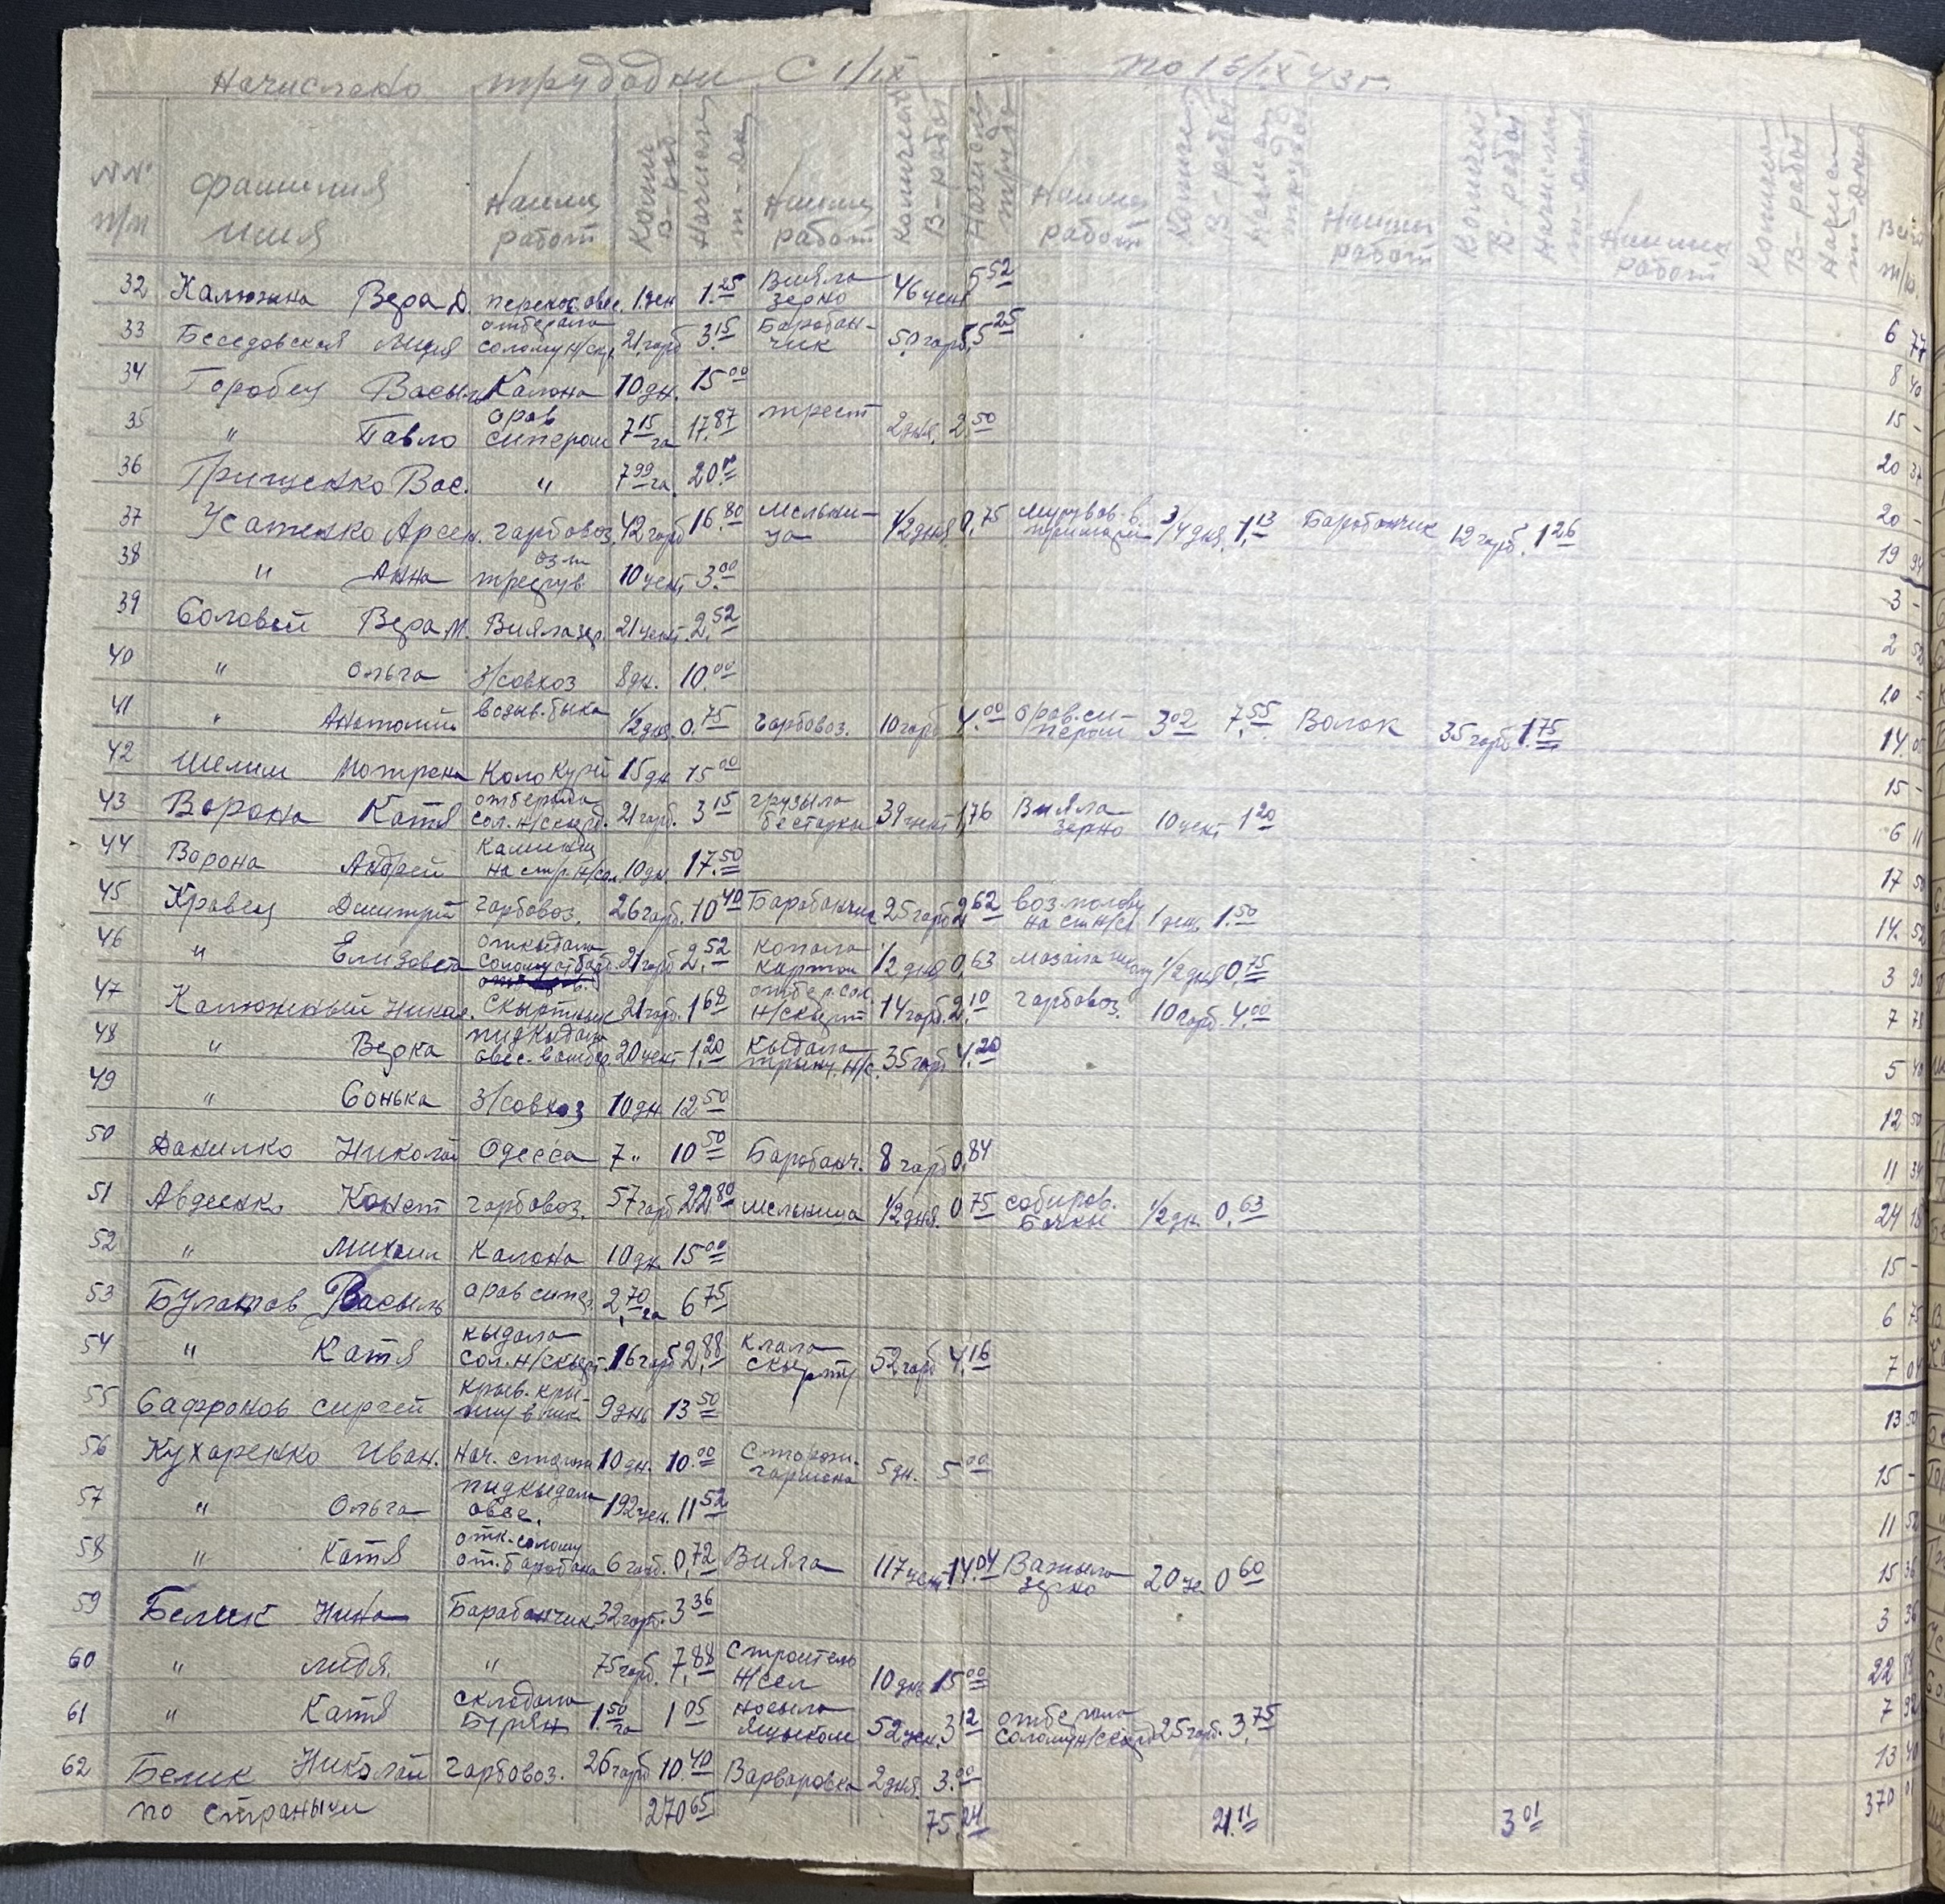 Начислено трудодни С 1/IX по 15/IX 43 г.
NN п/п Фамилия Имия Наим работ Колич В-работ Начисл т-дн Наимен работ Количест В-работ Начислен трудо Наимен работ Количест В-работ Начислен трудод Наимен работ Количест В-работ Начислен т-дней Наимен работ Количест В-работ Начисл т-дней Всего т/д.
32 Калюжна Вера Д. перенос. овес. 1 ден 1.25 Вияла зерно 46 цент 5 52 6 77
33 Беседовская Лидия отберала солому н/скр. 21 гарб 3.15 Баробанчик 50 гарб. 5 25 8 40
34 Горобец Васыль Калона 10 дн. 15 00 15 -
35 " Павло орав сипером 7 15 га 17.87 трест 2 дня. 2.50 20 37
36 Грищенко Вас. " 7 99 га. 20.00 20 -
37 Усатенко Арсен. гарбовоз. 42 гарб 16.80 мельница 1/2 дня 0,75 3/4 дня. 1,13 Баробанчик 12 гарб. 1 26 19 94
38 " Анна 10 цент. 3.00 3 -
39 Соловей Вера М. Вияла зер. 21 цент. 2.52 2 52
40 " Ольга З/совхоз 8 дн. 10.00 10 -
41 " Анатолий возыв. быка 1/2 дня. 0.75 гарбовоз. 10 гарб 4.00 орав. сипером 3 02 7.55 Волок 35 гарб 1.75 14. 05
42 Шелим Мотрена Коло курей 15 дн 15 00 15 -
43 Ворона Катя отберала сол. н/скирд. 21 гарб. 3 15 грузыла бестарки 39 цент 1,76 Вияла зерно 10 цент 1 20 6 11
44 Ворона Андрей Каминщ на стр. н/сел. 10 дн. 17.50 17 50
45 Кравец Дмитрий гарбовоз. 26 гарб. 10 40 Баробанчик 25 гарб 2 62 воз. полову на ст. н/с 1 день 1.50 14. 52
46 " Елизовета откыдала солому от бараб. 21 гарб 2.52 копала картоп 1/2 дня 0,63 мазала школу 1/2 дня 0,75 3 90
47 Калюжный Никол. скыртник 21 гарб. 1 68 отбер. сол. н/скырт 14 гарб. 2.10 гарбовоз. 10 гарб. 4.00 7 78
48 " Верка пидкыдала овес. в амбар. 20 цент 1.20 Кыдала 35 гарб 4.20 5 40
49 " Сонька З/совхоз 10 дн 12 50 12 50
50 Данилко Николай Одесса 7 " 10 50 Баробанч. 8 гарб 0,84 11 34
51 Авдеенко Конст гарбовоз. 57 гарб 22.80 мельница 1/2 дня. 0 75 собиров. бочки 1/2 дн. 0,63 24 18
52 " Михаил Калона 10 дн. 15 00 15 -
53 Булатов Васыль орав сипер. 2.70 га 6 75 6 75
54 " Катя кыдала сол. н/скырт. 16 гарб 2,88 клала скырту 52 гарб 4,16 7 04
55 Сафронов сиргей крыв. крышу в шк. 9 днь 13 50 13 50
56 Кухаренко Иван. Нач. 10 дн. 10.00 Сторож. гармана 5 дн. 5 00 15 -
57 " Ольга пидкыдала овес. 192 цен. 11 52 11 52
58 " Катя отк. солому от. баробана 6 гарб. 0,72 Вияла 117 цент 14.04 Важыла зерно 20 це 0 60 15 36
59 Белик Нина Баробанчик 32 гарб. 3 36 3 36
60 " лидя. " 75 гарб. 7,88 Строитель н/сел 10 днь 15 00 22 88
61 " Катя складала Бурян 1.50 га 1 05 носыла ящыком 52 цен. 3 12 отберала солому н/скирд 25 гарб. 3,75 7 92
62 Белик Николай гарбовоз. 26 гарб 10.40 Варваровка 2 дня. 3.00 13 40
по страныци 270 65 75.24 21.11 3 01 370 01